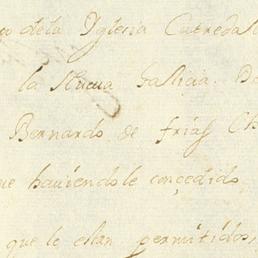 de la Yglesia Catredal
la Nueva Galicia. D
Bernardo de frias Ch
que haviendole conçedido
que le estan permitidos,